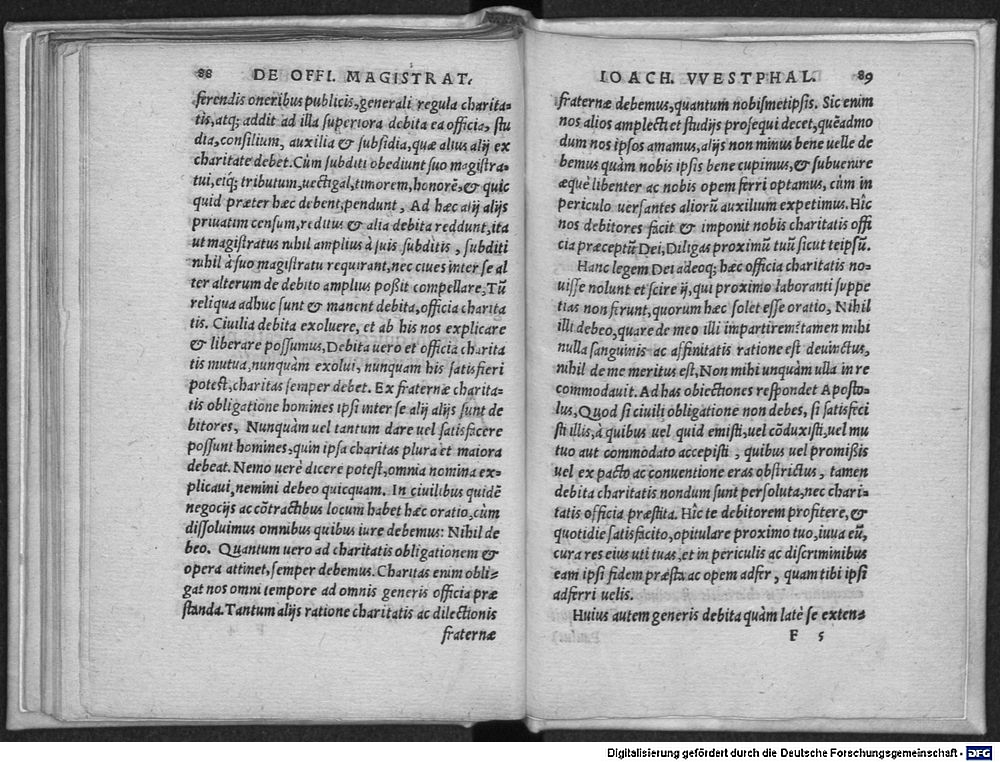 88 DE OFFI. MAGISTRAT.
ferendis oneribus publicis, generali regula charita-
tis, atq; addit ad illa superiora debita ea officia, stu
dia, consilium, auxilia & subsidia, quæ alius alij ex
charitate debet. Cùm subditi obediunt suo magistra-
tui, eiq; tributum, uectigal, timorem, honorẽ, & quic
quid præter hæc debent, pendunt, Ad hæc alij alijs
priuatim censum, reditus & alia debita reddunt, ita
ut magistratus nihil amplius à suis subditis, subditi
nihil à suo magistratu requirant, nec ciues inter se al
ter alterum de debito amplius poßit compellare, Tũ
reliqua adhuc sunt & manent debita, officia charita
tis. Ciuilia debita exoluere, et ab his nos explicare
& liberare possumus, Debita uero et officia charita
tis mutua, nunquàm exolui, nunquam his satisfieri
potest, charitas semper debet. Ex fraternæ charita-
tis obligatione homines ipsi inter se alij alijs sunt de
bitores, Nunquàm uel tantum dare uel satisfacere
possunt homines, quin ipsa charitas plura et maiora
debeat. Nemo uerè dicere potest, omnia nomina ex-
plicaui, nemini debeo quicquam. In ciuilibus quidẽ
negocijs ac cõtractibus locum habet hæc oratio, cùm
dissoluimus omnibus quibus iure debemus: Nihil de
beo. Quantum uero ad charitatis obligationem &
opera attinet, semper debemus. Charitas enim obli-
gat nos omni tempore ad omnis generis officia præ
standa. Tantum alijs ratione charitatis ac dilectionis
fraternæ
IOACH. VVESTPHAL. 89
fraternæ debemus, quantum nobismetipsis. Sic enim
nos alios amplecti et studijs prosequi decet, quẽadmo
dum nos ipsos amamus, alijs non minus bene uelle de
bemus quàm nobis ipsis bene cupimus, & subuenire
æquè libenter ac nobis opem ferri optamus, cùm in
periculo uersantes aliorũ auxilium expetimus. Hîc
nos debitores facit & imponit nobis charitatis offi
cia præceptũ Dei, Diligas proximũ tuũ sicut teipsũ.
Hanc legem Dei adeoq; hæc officia charitatis no-
uisse nolunt et scire ij, qui proximo laboranti suppe
tias non ferunt, quorum hæc solet esse oratio, Nihil
illi debeo, quare de meo illi impartirem? tamen mihi
nulla sanguinis ac affinitatis ratione est deuinctus,
nihil de me meritus est, Non mihi unquàm ulla in re
commodauit. Ad has obiectiones respondet Aposto-
lus, Quod si ciuili obligatione non debes, si satisfeci
sti illis, à quibus uel quid emisti, uel cõduxisti, uel mu
tuo aut commodato accepisti, quibus uel promißis
uel ex pacto ac conuentione eras obstrictus, tamen
debita charitatis nondum sunt persoluta, nec chari-
tatis officia præstita. Hîc te debitorem profitere, &
quotidie satisfacito, opitulare proximo tuo, iuua eũ,
cura res eius uti tuas, et in periculis ac discriminibus
eam ipsi fidem præsta ac opem adfer, quam tibi ipsi
adferri uelis.
Huius autem generis debita quàm latè se exten-
F 5
Digitalisierung gefördert durch die Deutsche Forschungsgemeinschaft - DFG